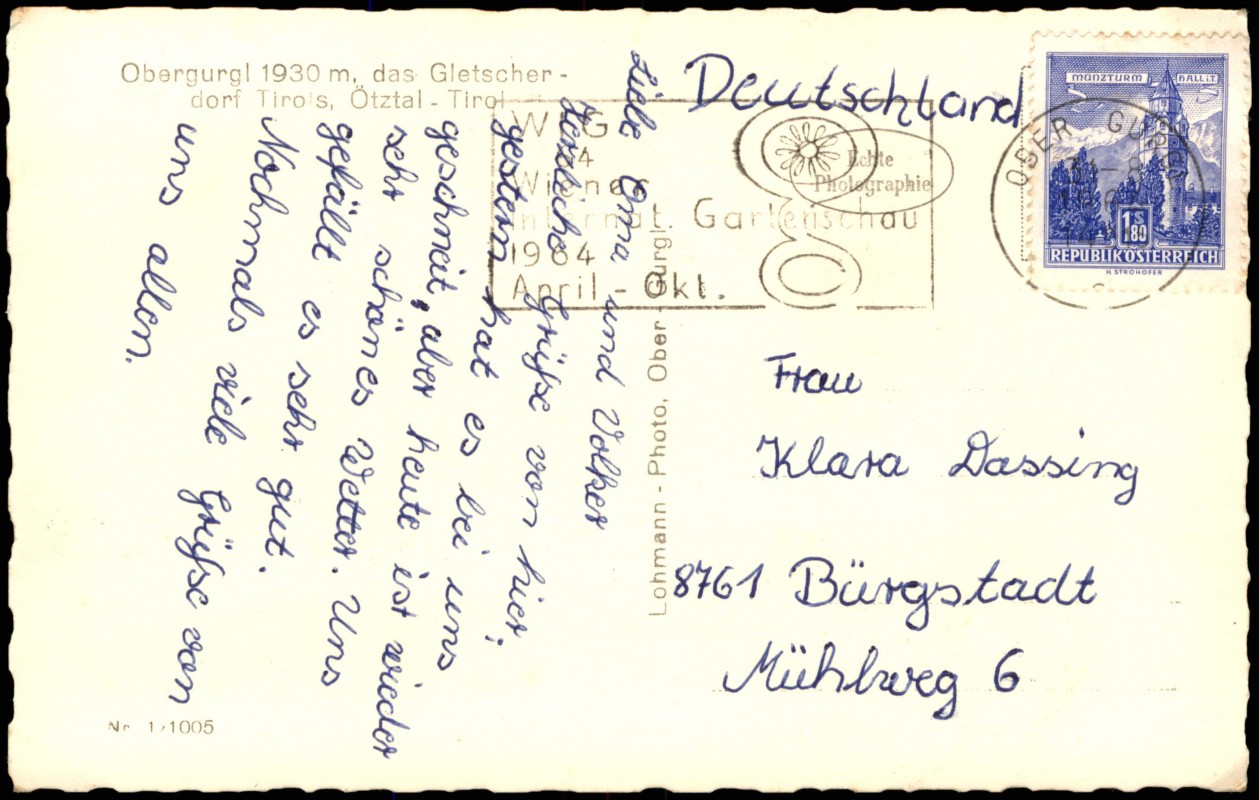 Obergurgl 1930 m, das Gletscher-
dorf Tirols, Ötztal - Tirol
Liebe Oma und Volker
Herzliche Grüße von hier,
gestern hat es bei uns
geschneit, aber heute ist wieder
sehr schönes Wetter. Uns
gefällt es sehr gut.
Nochmals viele Grüße von
uns allen.
Nr. 1/1005
Lohmann - Photo, Ober-Gurgl
Deutschland
WIG
64
Wiener
Internat. Gartenschau
1964
April - Okt.
Echte
Photographie
MÜNZTURM HALL i.T.
1 S 80
REPUBLIK ÖSTERREICH
H. STROHOFER
OBERGURGL
Frau
Klara Dassing
8761 Bürgstadt
Mühlweg 6